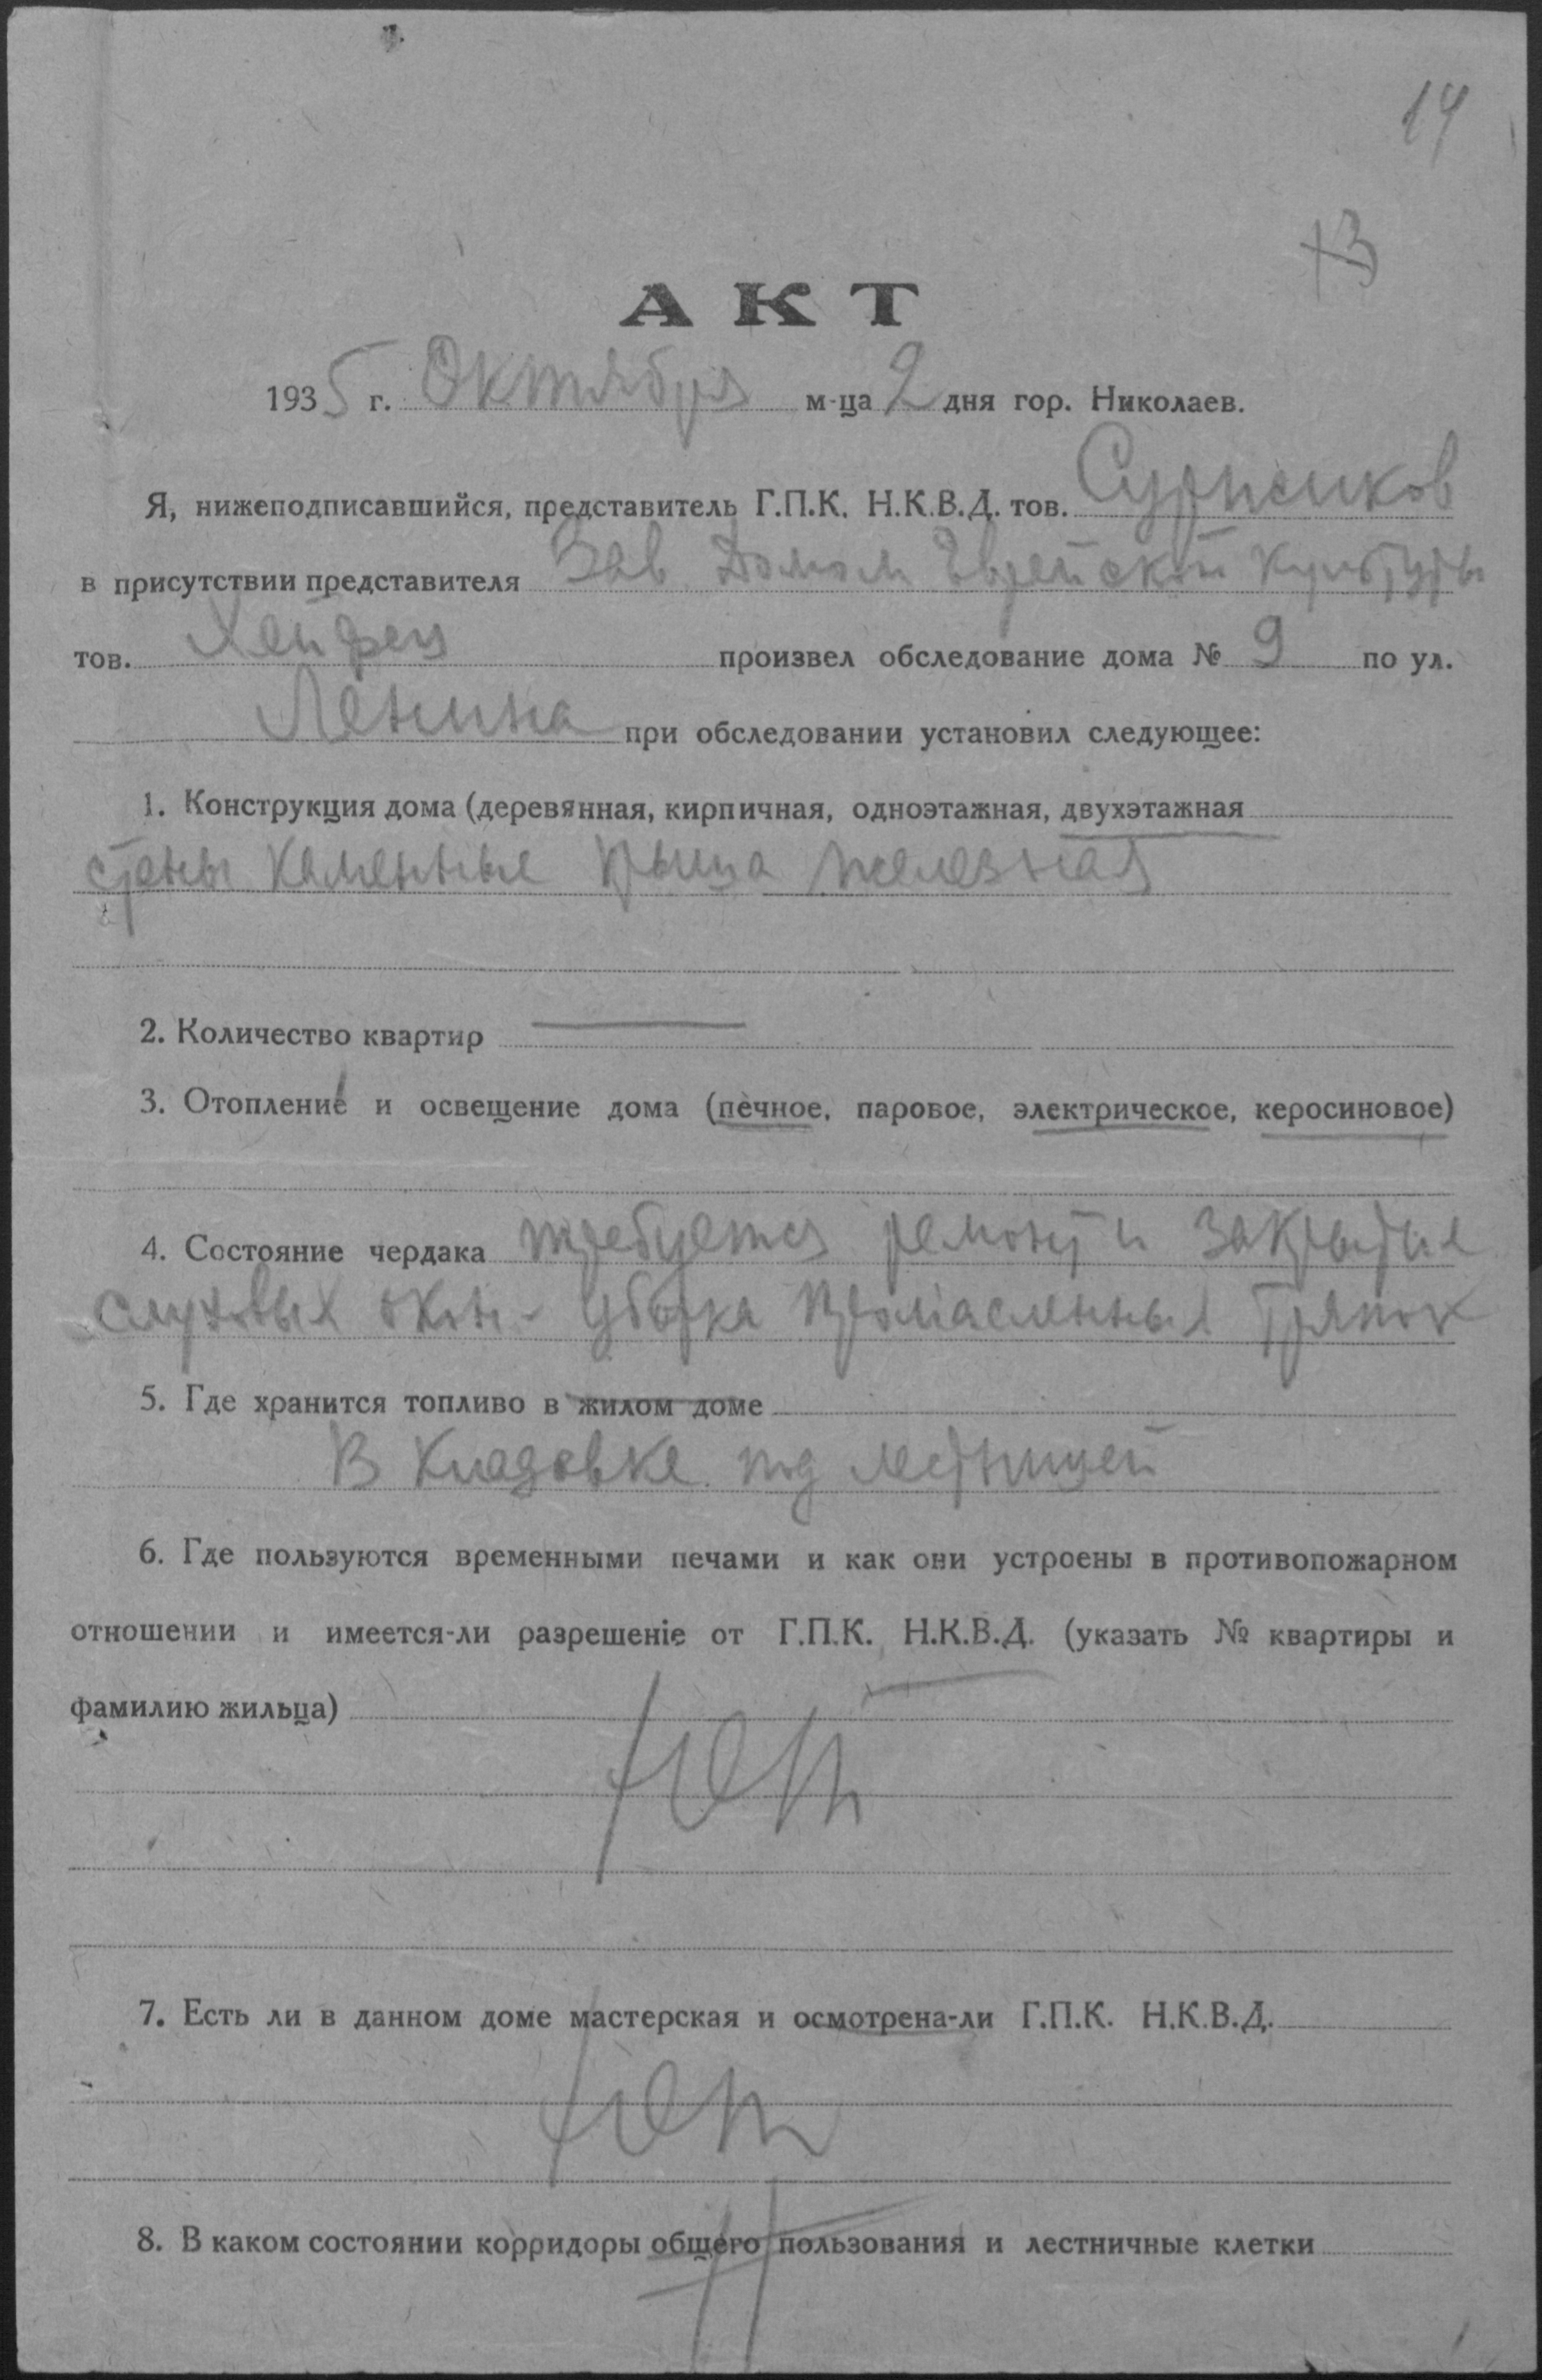 14
13
АКТ
1935 г. Октября м-ца 2 дня гор. Николаев.
Я, нижеподписавшийся, представитель Г.П.К. Н.К.В.Д. тов.
в присутствии представителя Зав Домом Еврейской культуры
тов. Хейфец произвел обследование дома № 9 по ул.
Ленина при обследовании установил следующее:
1. Конструкция дома (деревянная, кирпичная, одноэтажная, двухэтажная
стены каменные крыша железная
2. Количество квартир —
3. Отопление и освещение дома (печное, паровое, электрическое, керосиновое)
4. Состояние чердака требуется ремонт и закрытие
слуховых окон - уборка промасленных тряпок
5. Где хранится топливо в жилом доме
В Кладовке под лестницей
6. Где пользуются временными печами и как они устроены в противопожарном
отношении и имеется-ли разрешеніе от Г.П.К. Н.К.В.Д. (указать № квартиры и
фамилию жильца)
Нет
7. Есть ли в данном доме мастерская и осмотрена-ли Г.П.К. Н.К.В.Д.
Нет
8. В каком состоянии корридоры общего пользования и лестничные клетки